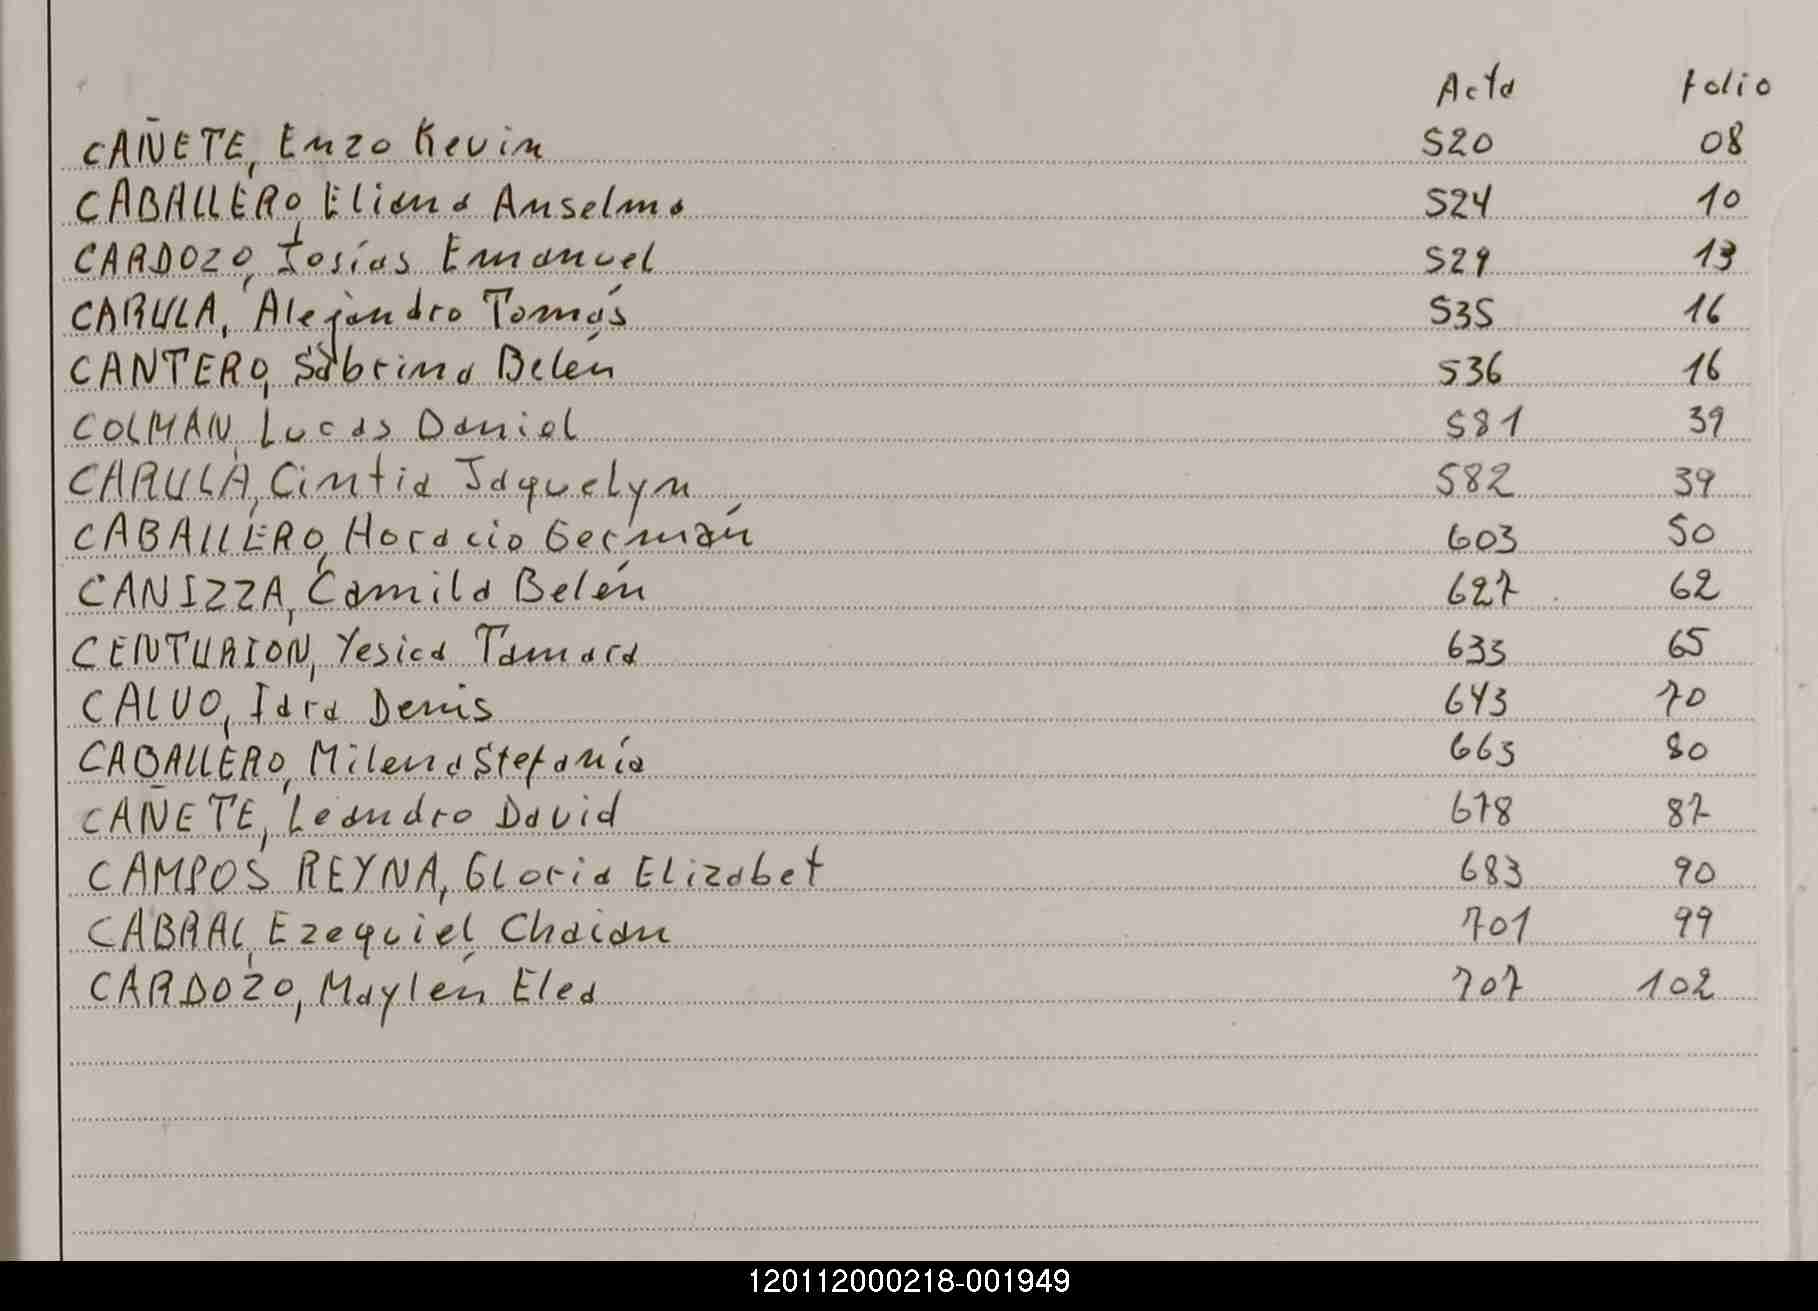 Acta folio
CAÑETE, Enzo Kevin 520 08
CABALLERO, Eliana Anselma 524 10
CARDOZO, Josías Emanuel 529 13
CARULA, Alejandro Tomás 535 16
CANTERO, Sabrina Belén 536 16
COLMAN, Lucas Daniel 581 39
CARULA, Cintia Jaquelyn 582 39
CABALLERO, Horacio Germán 603 50
CANIZZA, Camila Belén 627 62
CENTURION, Yesica Tamara 633 65
CALVO, Iara Denis 643 70
CABALLERO, Milena Stefanía 663 80
CAÑETE, Leandro David 678 87
CAMPOS REYNA, Gloria Elizabet 683 90
CABRAL, Ezequiel Chaian 701 99
CARDOZO, Maylén Elea 707 102
120112000218-001949